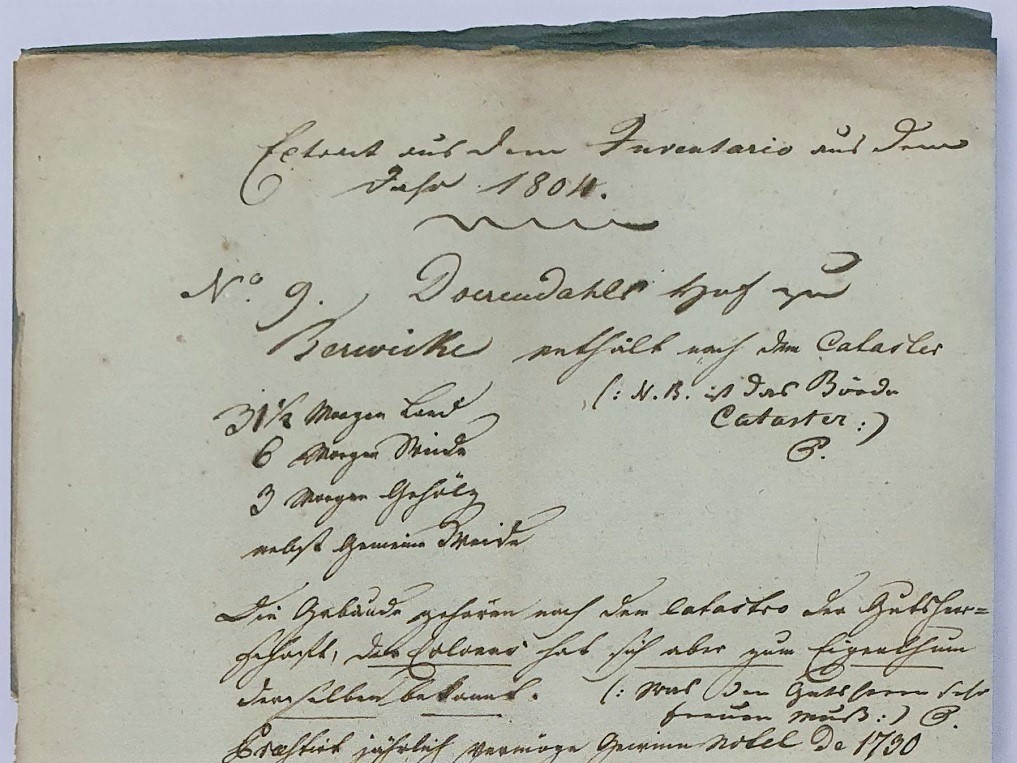 Extract aus dem Inventario aus dem
Jahr 1804.
No. 9. Doerendahls Hof zu
Berwicke enthält nach dem Cataster
(: N. B. ist das Börde
Cataster :)
31½ Morgen Land
6 Morgen Weide
3 Morgen Gehölz
nebst Gemeine Weide
Die Gebäude gehören nach dem Catastro der Gutsherr=
schaft, der Colonus hat sich aber zum Eigenthum
derselben bekannt. (: was den Gutsherrn sehr
freuen muß :)
Præstirt jährlich vermöge Gewinn Notel de 1730